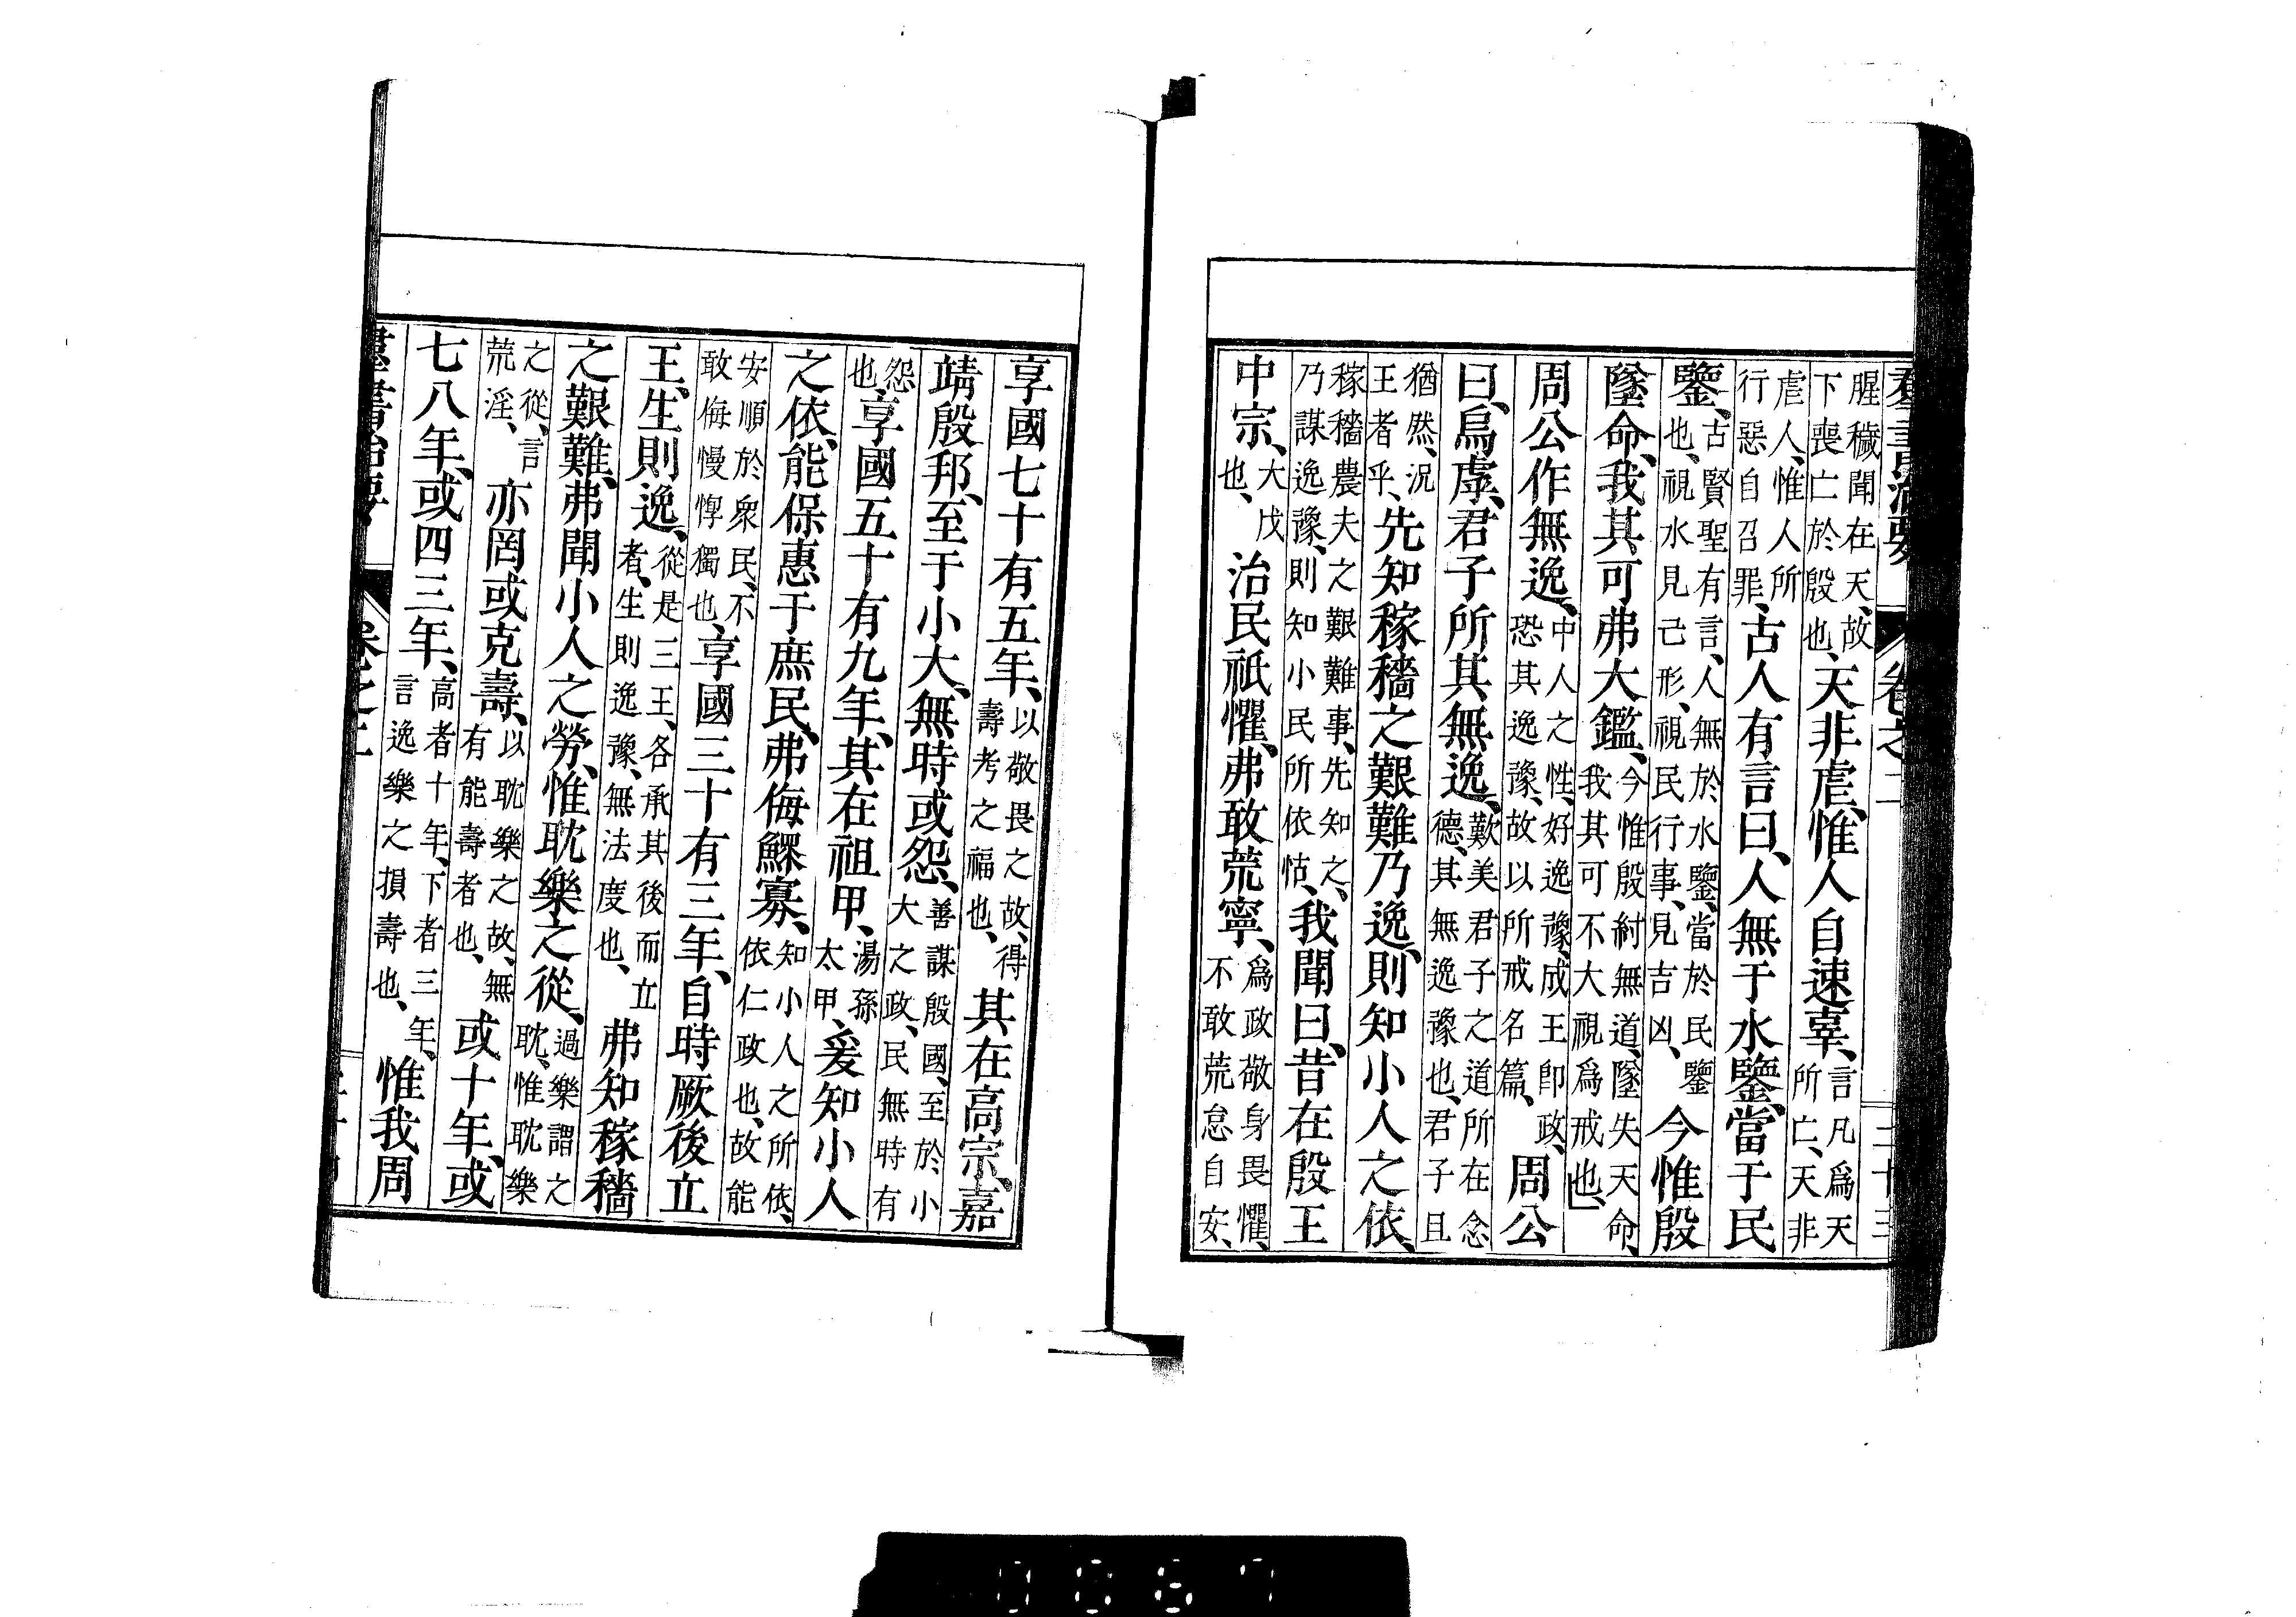 羣書治要　卷之二　二十三
腥穢聞在天、故下喪亡於殷也、天非虐、惟人自速辜、言凡爲天所亡、天非
虐人、惟人所行惡自召罪、古人有言曰、人無于水鑒、當于民
鑒、古賢聖有言、人無於水鑒、當於民鑒也、視水見己形、視民行事、見吉凶、今惟殷
墜命、我其可弗大鑑、今惟殷紂無道、墜失天命、我其可不大視爲戒也、」
周公作無逸、中人之性、好逸豫、成王即政、恐其逸豫、故以所戒名篇、周公
曰、烏虖、君子所其無逸、歎美君子之道所在念德、其無逸豫也、君子且
猶然、況王者乎、先知稼穡之艱難乃逸、則知小人之依、
稼穡農夫之艱難事、先知之、乃謀逸豫、則知小民所依怙、我聞曰、昔在殷王
中宗、大戊也、治民祇懼、弗敢荒寧、爲政敬身畏懼、不敢荒怠自安、
享國七十有五年、以敬畏之故、得壽考之福也、其在高宗、嘉
靖殷邦、至于小大、無時或怨、善謀殷國、至於小大之政、民無時有
怨也、享國五十有九年、其在祖甲、湯孫太甲、爰知小人
之依、能保惠于庶民、弗侮鰥寡、知小人之所依、依仁政也、故能
安順於衆民、不敢侮慢惸獨也、享國三十有三年、自時厥後立
王、生則逸、從是三王、各承其後而立者、生則逸豫、無法度也、弗知稼穡
之艱難、弗聞小人之勞、惟耽樂之從、過樂謂之耽、惟耽樂
之從、言荒淫、亦罔或克壽、以耽樂之故、無有能壽者也、或十年、或
七八年、或四三年、高者十年、下者三年、言逸樂之損壽也、惟我周
羣書治要　卷之二